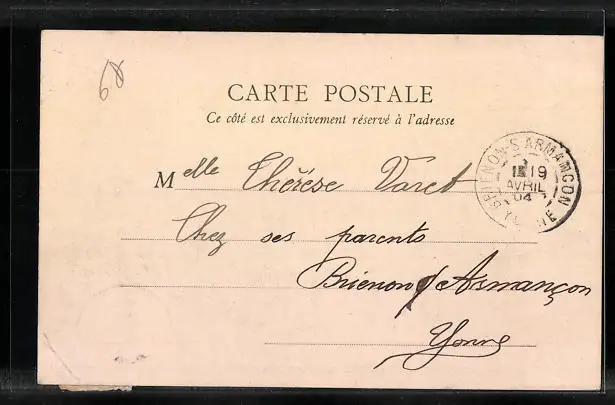 68
CARTE POSTALE
Ce côté est exclusivement réservé à l'adresse
BRIENON-S-ARMANÇON
19
AVRIL
04
YONNE
Melle Thérèse Varet
Chez ses parents
Brienon s/ Armançon
Yonne